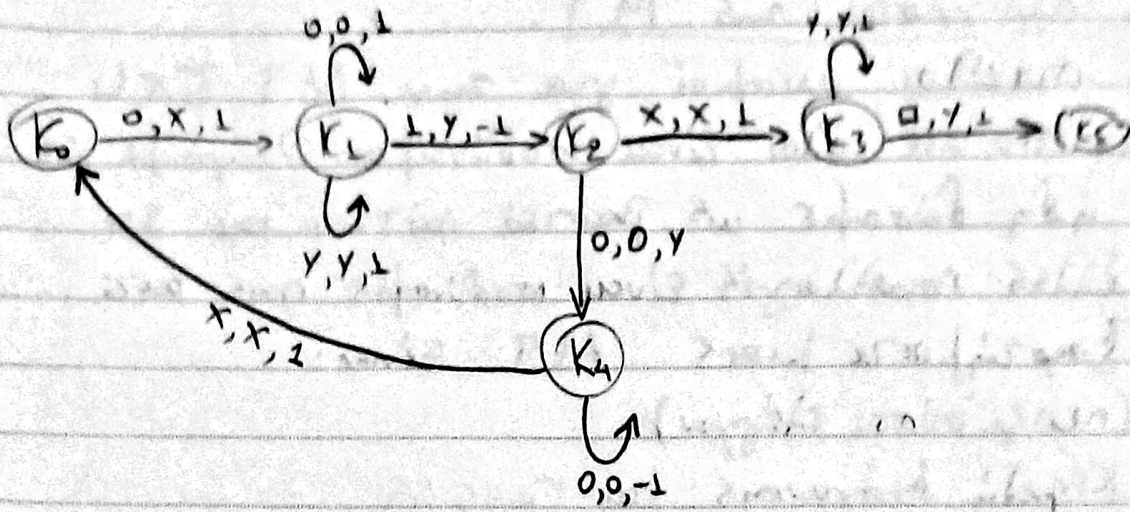 0,0,1
Y,Y,1
K₀ 0,X,1 K₁ 1,Y,-1 K₂ X,X,1 K₃ 0,Y,1 K₅
Y,Y,1
0,0,Y
X,X,1
K₄
0,0,-1